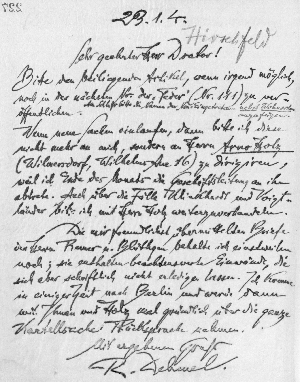 222
23.1.4.
Hirschfeld
Sehr geehrter Herr
Bitte den beiliegenden Artikel, wenn irgend möglich,
noch in der nächsten Nr. der „Feder" (No. 141) zu ver-
öffentlichen.
Wenn neue Sachen einlaufen, dann bitte ich diese
nicht mehr an mich, sondern an Herrn Arno Holz
(Wilmersdorf, Wilhelms-Aue 16) zu dirigiren,
weil ich Ende des Monats die Geschäftsleitung an ihn
abtrete. Auch über die Fälle und Voigt-
länder bitte ich mit Herrn Holz weiterzuverhandeln.
Die mir freundlichst übermittelten Briefe
der Herren und Blüthgen behalte ich einstweilen
noch; sie enthalten beachtenswerte Einwände, die
sich aber schriftlich nicht erledigen lassen. Ich komme
in einiger Zeit nach Berlin und werde dann
mit Ihnen und Holz mal gründlich über die ganze
Rücksprache nehmen.
Mit ergebenem Gruß
R. Dehmel.